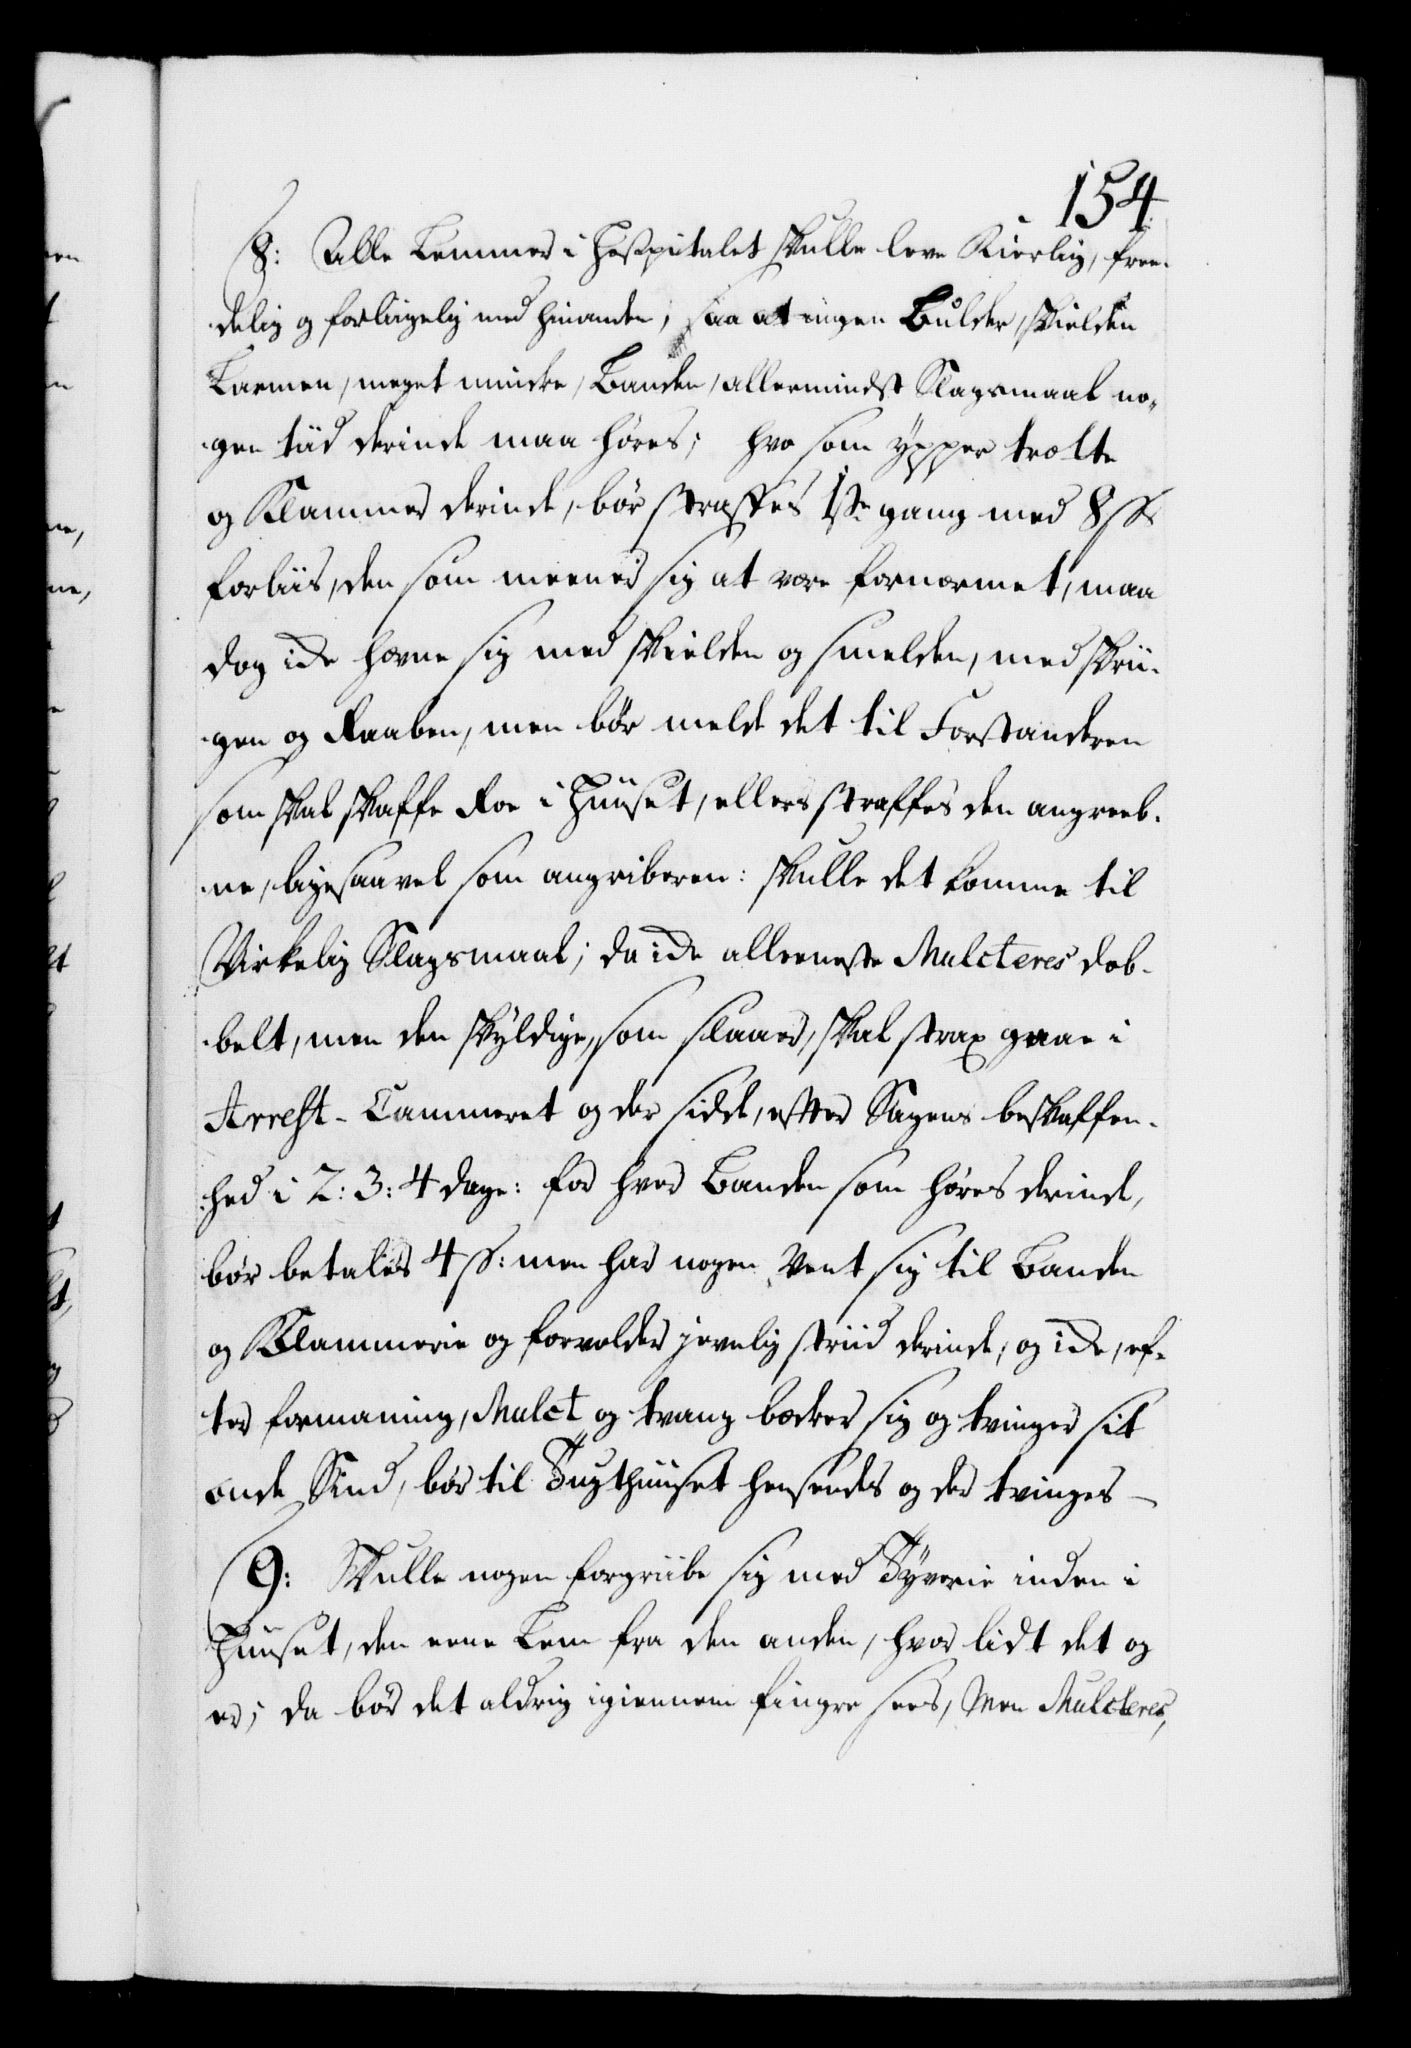 154
8: Alle Lemmer i Hospitalet skulle leve Kierlig, free-
delig og forligelig med hinanden, saa at ingen Bulder, skielden
Larmen, meget mindre, Banden, allermindst Slagsmaal no-
gen tiid derinde maa høres; hvo som ÿpper trætte
og Klammer derinde, bør straffes 1ste gang med 8 ss
forliis, den som meener sig at være fornærmet, maa
dog icke hævne sig med skielden og smelden, med skrii-
gen og Raaben, men bør melde det til Forstanderen
som skal skaffe Roe i Huuset, ellers straffes den angreeb-
ne, ligesaavel som angriberen: skulle det komme til
Virkelig Slagsmaal; da icke alleeneste Mulcteres dob-
belt, men den skÿldige, som slaaer, skal strax gaae i
Arrest-Cammeret og der sidde, efter Sagens beskaffen-
hed i 2: 3: 4 dage: for hver Banden som høres derinde,
bør betales 4 s: men har nogen Vent sig til Banden
og Klammerie og forvolder jevnlig striid derinde, og icke, ef-
ter formaning, Mulct og tvang bædrer sig og tvinger sit
onde Sind, bør til Tugthuuset hensendes og der tvinges —
9: Skulle nogen forgriibe sig med Tÿverie inden i
Huuset, den eene Lem fra den anden, hvor lidt det og
er; da bør det aldrig igiennem fingre sees, Men Mulcteres,